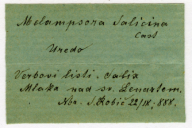 Melampsora Salicina
Cast
Uredo
Verbovi listi. Salix
Mlaka nad sv. Lenartom.
Nbr. S. Robič 22/IX, 888.